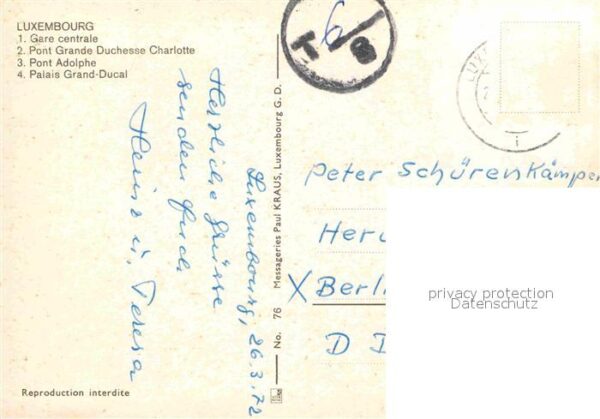 LUXEMBOURG
1. Gare centrale
2. Pont Grande Duchesse Charlotte
3. Pont Adolphe
4. Palais Grand-Ducal
T 6/S
Luxembourg, 26.3.72
Herzliche Grüsse
senden Euch
Heinz u. Teresa
No. 76 Messageries Paul KRAUS, Luxembourg G. D.
Peter Schürenkämper
Her
X Berl
D D
privacy protection
Datenschutz
Reproduction interdite